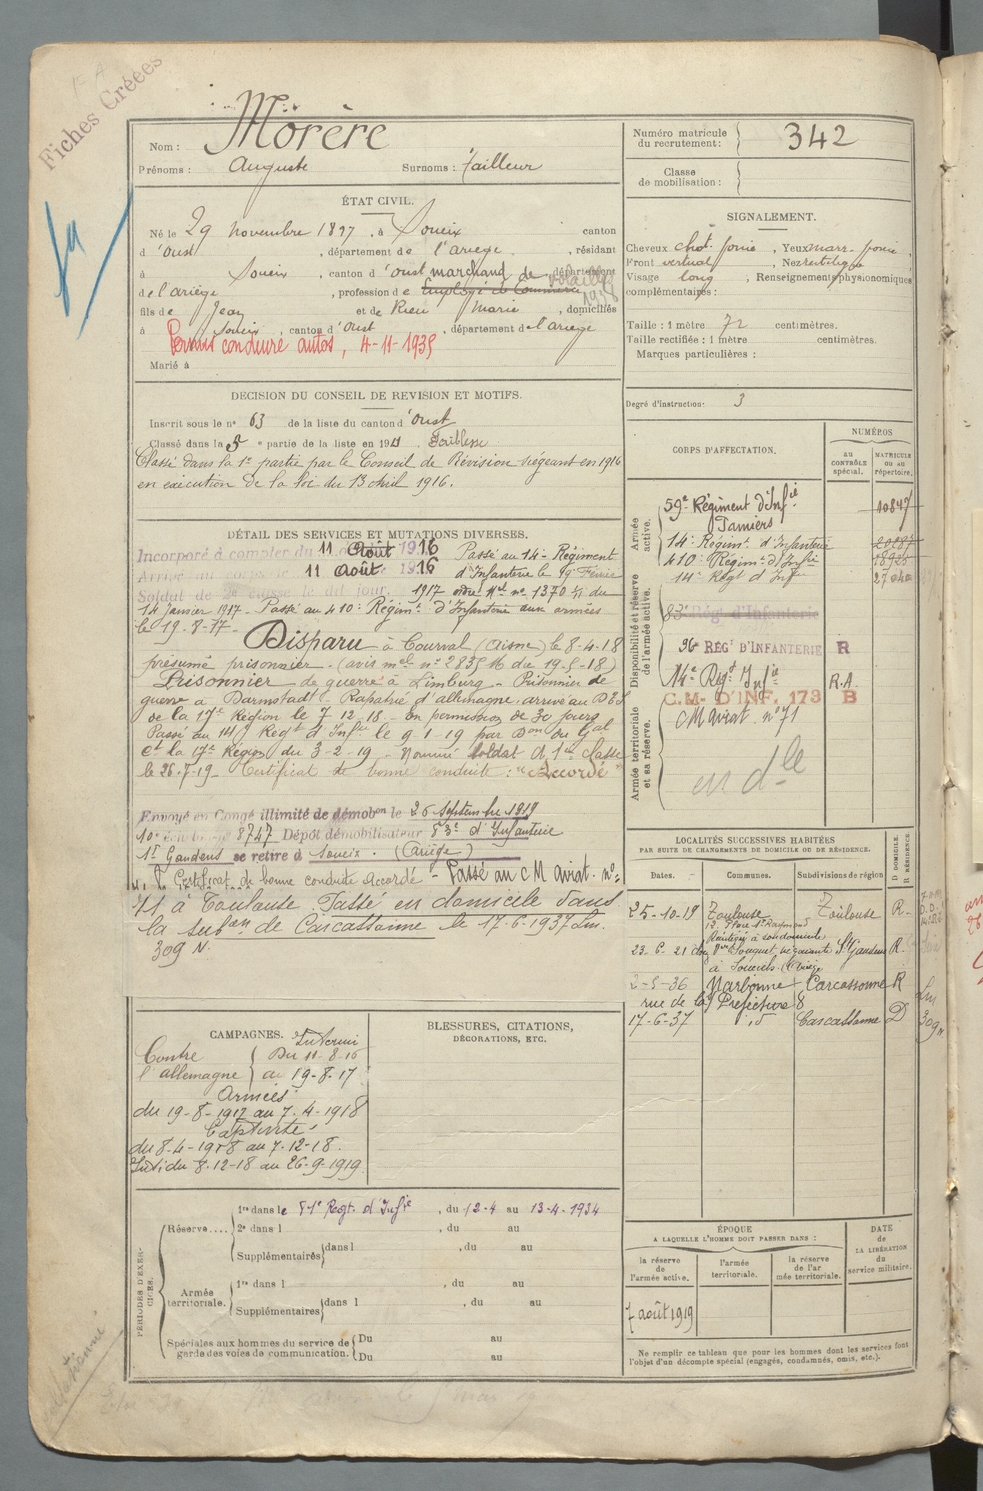 Fiches Créées
Nom : Morère
Prénoms : Auguste Surnoms : Tailleur
Numéro matricule du recrutement : 342
Classe de mobilisation :
ÉTAT CIVIL.
Né le 29 Novembre 1897, à Soueix canton
d'Oust, département de l'Ariège, résidant
à Soueix, canton d'Oust, département
de l'Ariège, profession de Employé de Commerce marchand de volailles 1918
fils de Jean et de Rieu Marie, domiciliés
à Soueix, canton d'Oust, département de l'Ariège
Permis conduire autos, 4-11-1935
Marié à
SIGNALEMENT.
Cheveux chat. foncé, Yeux marr. foncé,
Front vertical, Nez rectiligne
Visage long, Renseignements physionomiques
complémentaires :
Taille : 1 mètre 72 centimètres.
Taille rectifiée : 1 mètre centimètres.
Marques particulières :
Degré d'instruction : 3
DECISION DU CONSEIL DE REVISION ET MOTIFS.
Inscrit sous le n° 63 de la liste du canton d'Oust
Classé dans la 5e partie de la liste en 191 faiblesse
Classé dans la 1e partie par le Conseil de Révision siégeant en 1916
en exécution de la loi du 13 Avril 1916.
DÉTAIL DES SERVICES ET MUTATIONS DIVERSES.
Incorporé à compter du 11 Août 1916 Passé au 14e Régiment
Arrivé au corps le 11 Août 1916 d'Infanterie le 19 Février
Soldat de 2e classe le dit jour. 1917 ordre Mel n° 1370 du
14 janvier 1917 - Passé au 410e Régimt d'Infanterie aux armées
le 19-8-17-
Disparu à Courval (Aisne) le 8-4-18
présumé prisonnier. (avis mel n° 2835 M du 19-5-18)
Prisonnier de guerre à Limburg - Prisonnier de
guerre à Darmstadt - Rapatrié d'Allemagne arrivé au
de la 17e Région le 7 12 18 - En permission de 30 jours
Passé au 14 Regt d'Infie le 9-1-19 par Don du Gal
Ct la 17e Région du 3-2-19 - Nommé soldat de 1ère classe
le 26-7-19 - Certificat de bonne conduite : "Accordé"
Envoyé en Congé illimité de démobon le 26 septembre 1919
8747 Dépôt démobilisateur 83e d'Infanterie
St Gaudens se retire à Soueix. (Ariège)
Certificat de bonne conduite Accordé - Passé au CM Aviat. n°
71 à Toulouse. Passé en domicile dans
la subon de Carcassonne le 17-6-1937
309 N
CORPS D'AFFECTATION.
NUMÉROS
au CONTRÔLE spécial.
MATRICULE ou au répertoire.
Armée active.
59e Régiment d'Infie 10847
Pamiers
14e Régimt d'Infanterie
410e Régimt d'Infie
14e Regt d'Infie
Disponibilité et réserve de l'armée active.
83e Régt d'Infanterie
96e RÉGT D'INFANTERIE R
14e Regt Infie R.A.
C.M. D'INF. 173 B
Armée territoriale et sa réserve.
CM aviat. n° 71
en dlle
LOCALITÉS SUCCESSIVES HABITÉES
PAR SUITE DE CHANGEMENTS DE DOMICILE OU DE RÉSIDENCE.
Dates. Communes. Subdivisions de région D DOMICILE. R RÉSIDENCE.
25-10-19 Toulouse Toulouse R.
12 Place St Raymond
23-6-21 St Gaudens R
2-5-36 Narbonne Carcassonne R
rue de la Préfecture 8
17-6-37 Carcassonne D
CAMPAGNES.
Contre l'allemagne
Intérieur
Du 11-8-16
au 19-8-17
Armées
du 19-8-1917 au 7-4-1918
Captivité
du 8-4-1918 au 7-12-18.
Intr du 8-12-18 au 26-9-1919.
BLESSURES, CITATIONS,
DÉCORATIONS, ETC.
PÉRIODES D'EXERCICES.
Réserve....
1re dans le 81e Regt d'Infie, du 12-4 au 13-4-1934
2e dans l , du au
Supplémentaires dans l , du au
Armée territoriale.
1re dans l , du au
Supplémentaires dans l , du au
Spéciales aux hommes du service de
garde des voies de communication.
Du au
Du au
ÉPOQUE
A LAQUELLE L'HOMME DOIT PASSER DANS :
la réserve de l'armée active.
l'armée territoriale.
la réserve de l'armée territoriale.
DATE de LA LIBÉRATION du service militaire.
7 août 1919
Ne remplir ce tableau que pour les hommes dont les services font
l'objet d'un décompte spécial (engagés, condamnés, omis, etc.).